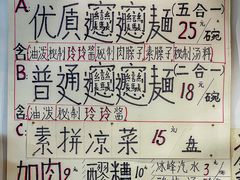 A
优质𰻝𰻝麺(五合一)25/碗
含(油泼秘制玲玲酱秘制肉臊子素臊子秘制汤料)
B
普通𰻝𰻝麺(二合一)18/碗
含(油泼秘制玲玲酱)
C
素拼凉菜 15/盘
加肉9 醪糟10 冰峰汽水3